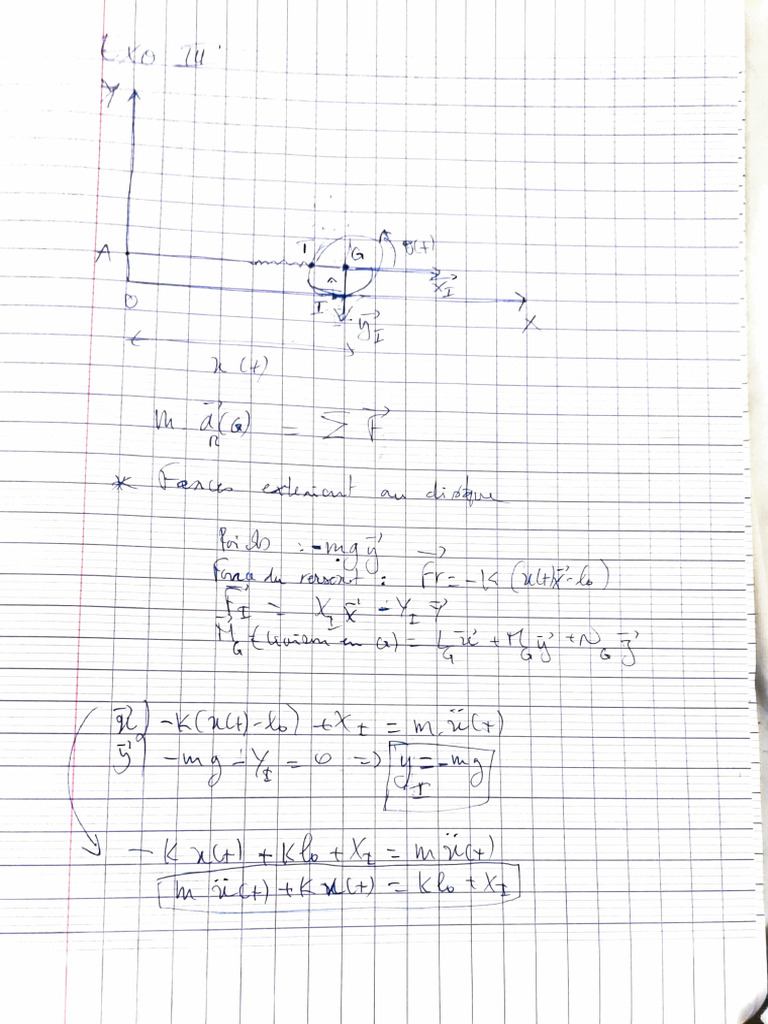 Exo III
Y
A
T
G
θ(t)
a
X⃗_I
O
I
y⃗_I
X
x(t)
m a⃗_R(G) = Σ F⃗
* Forces exterient au disque
Poids : -mg y⃗
Force du ressort : F⃗r = -K (x(t)x⃗ - l₀)
F⃗_I = X_I x⃗ - Y_I y⃗
M⃗_G (liaison en G) = L_G x⃗ + M_G y⃗ + N_G z⃗
x⃗) -K(x(t) - l₀) + X_I = m ẍ(t)
y⃗) -mg - Y_I = 0 => y_I = -mg
-K x(t) + K l₀ + X_I = m ẍ(t)
m ẍ(t) + K x(t) = K l₀ + X_I